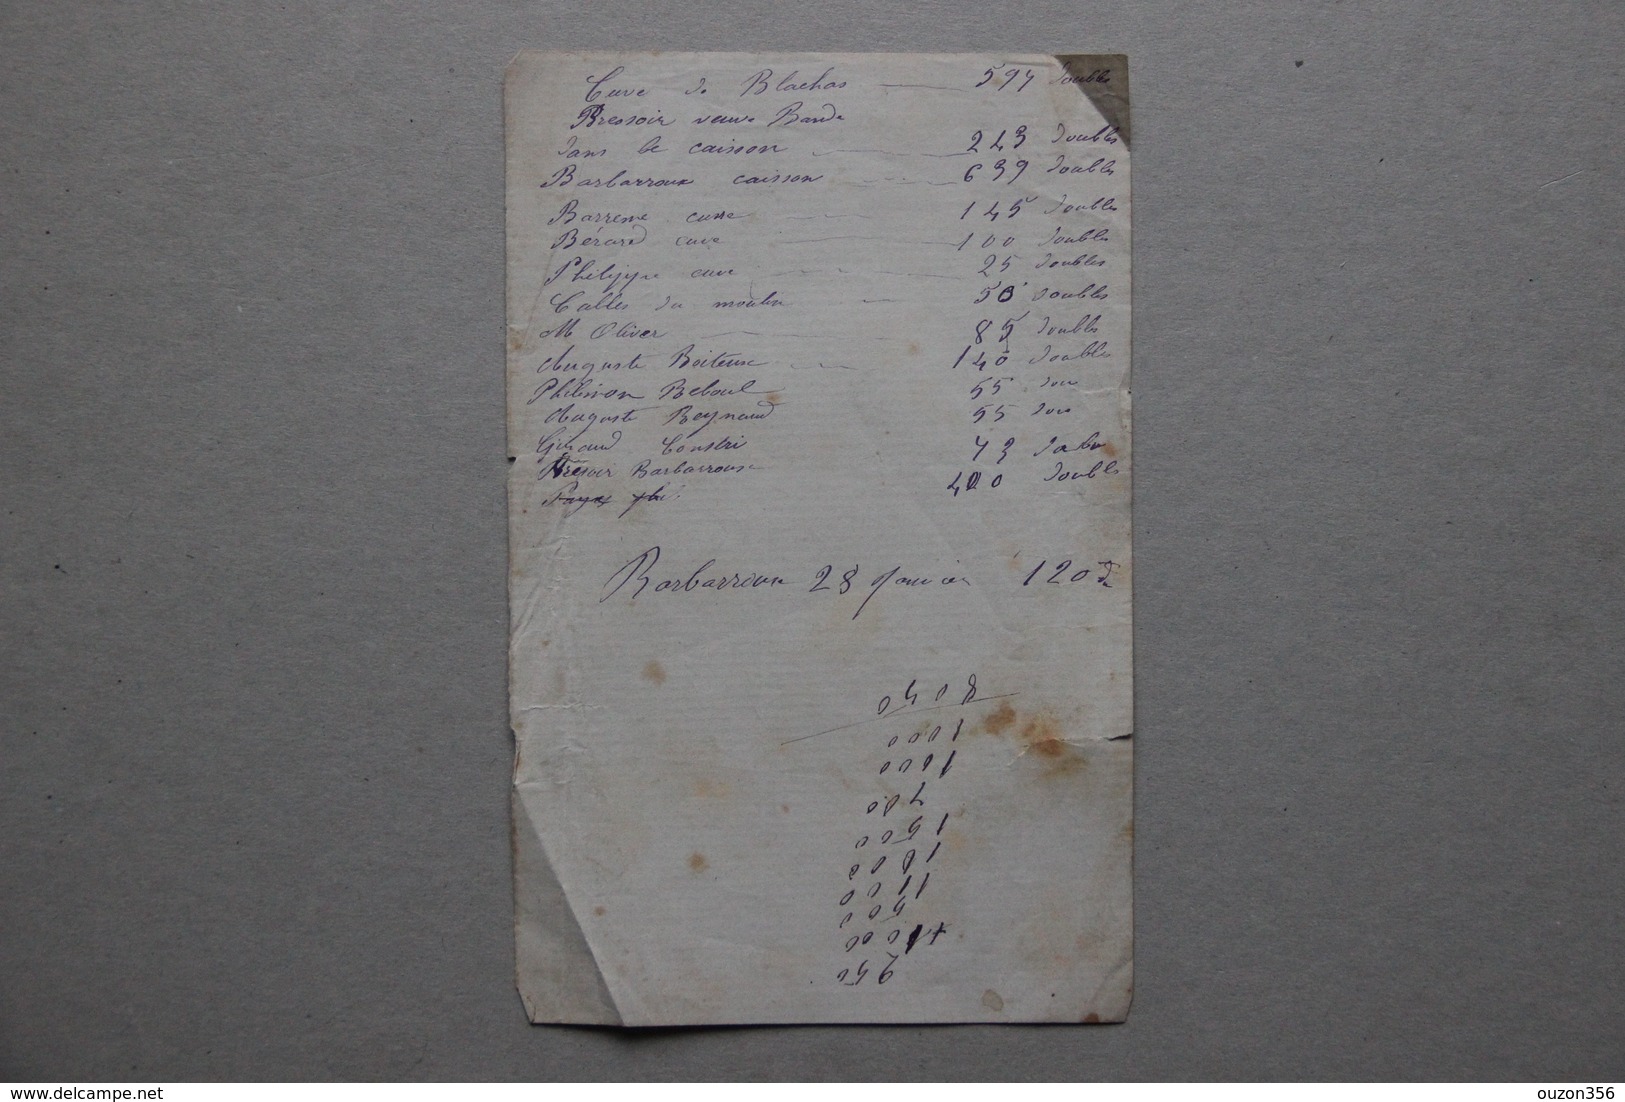 Cuve de Blachas 594 doubles
Pressoir veuve Barde
dans le caisson 243 doubles
Barbarroux caisson 639 doubles
Barreme cuve 145 doubles
Bérard cuve 100 doubles
Philippe cuve 25 doubles
Calles du moulin 50 doubles
M Olivier 85 doubles
Auguste Boiteux 140 doubles
Philinon Reboul 55 dou
Auguste Reynaud 55 dou
Giraud 43
Pressoir Barbarroux 400 doubles
Barbarroux 28 Janvier 120 du
250
+ 1000
500
1100
1000
1500
700
1000
1000
8040
www.delcampe.net
ouzon356